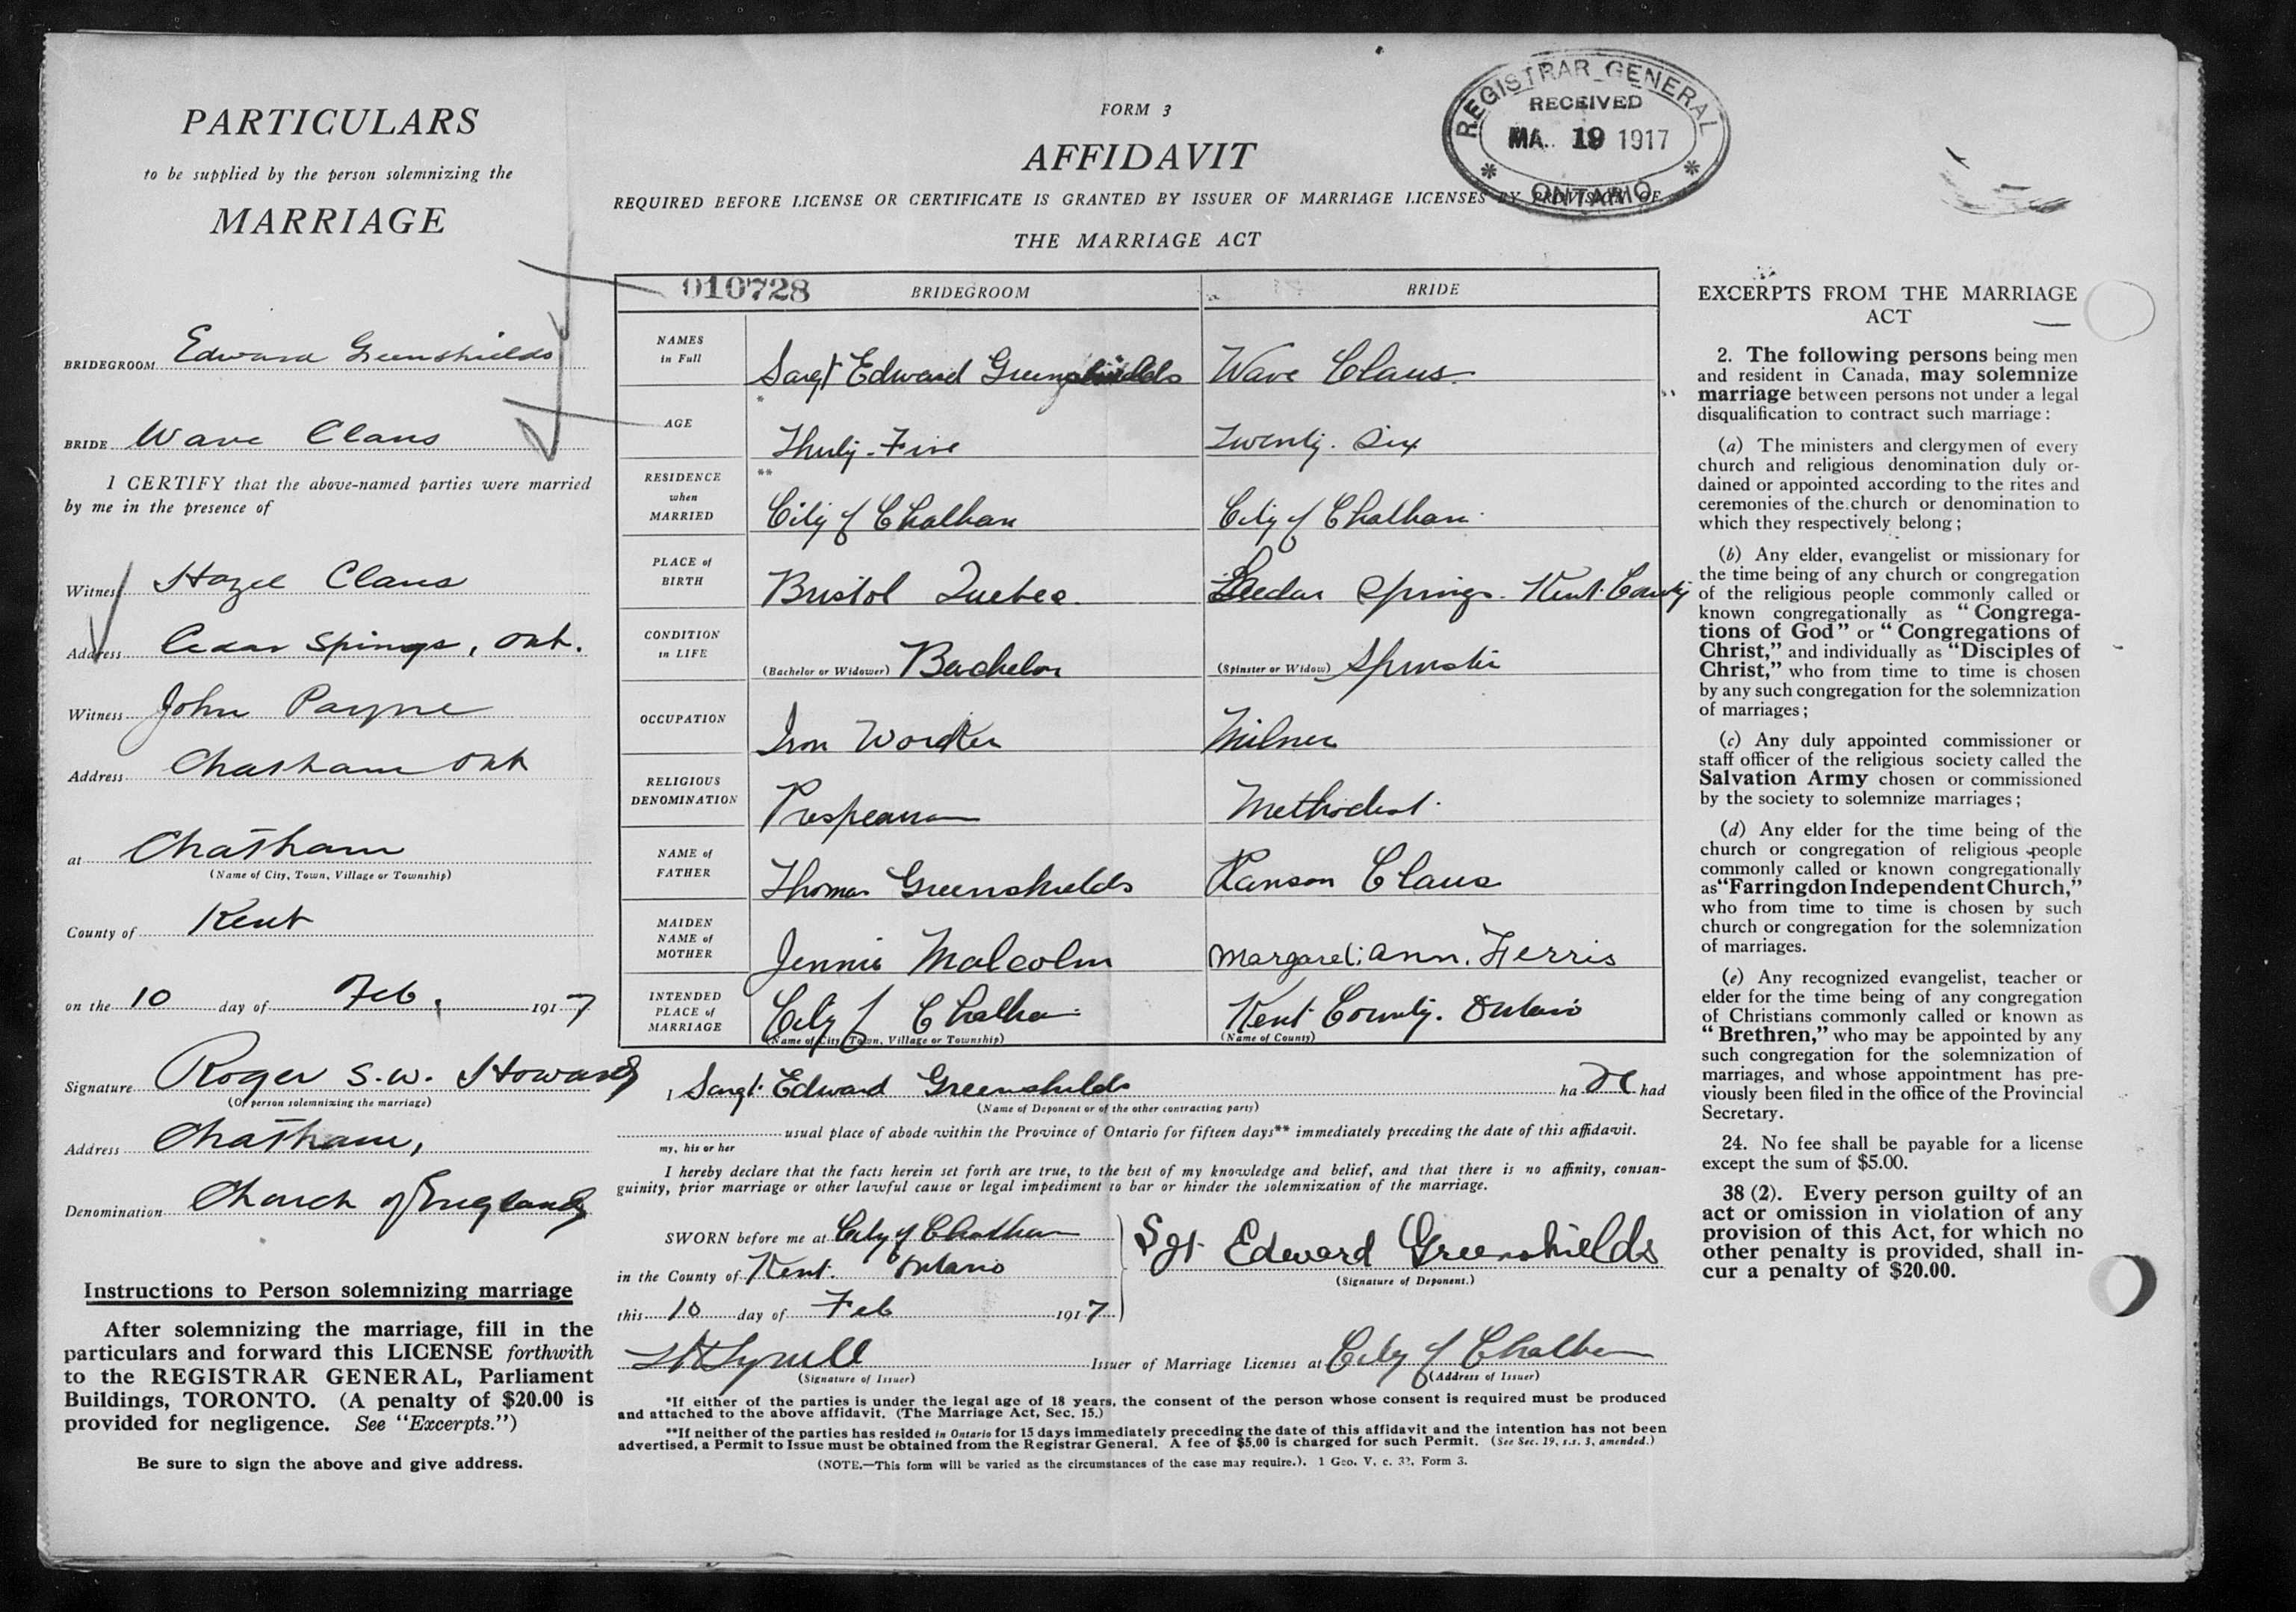 PARTICULARS
to be supplied by the person solemnizing the
MARRIAGE
BRIDEGROOM Edward Greenshields
BRIDE Wave Claus
I CERTIFY that the above-named parties were married
by me in the presence of
Witness Hazel Claus
Address Cedar Springs, Ont.
Witness John Payne
Address Chatham Ont
at Chatham
(Name of City, Town, Village or Township)
County of Kent
on the 10 day of Feb. 1917
Signature Roger S.W. Howard
(Of person solemnizing the marriage)
Address Chatham,
Denomination Church of England
Instructions to Person solemnizing marriage
After solemnizing the marriage, fill in the
particulars and forward this LICENSE forthwith
to the REGISTRAR GENERAL, Parliament
Buildings, TORONTO. (A penalty of $20.00 is
provided for negligence. See "Excerpts.")
Be sure to sign the above and give address.
FORM 3
AFFIDAVIT
REQUIRED BEFORE LICENSE OR CERTIFICATE IS GRANTED BY ISSUER OF MARRIAGE LICENSES BY PROVISION OF
THE MARRIAGE ACT
REGISTRAR GENERAL
RECEIVED
MA. 19 1917
ONTARIO
010728 BRIDEGROOM BRIDE
NAMES in Full Sargt Edward Greenshields Wave Claus
* AGE Thirty-Five Twenty. Six
** RESIDENCE when MARRIED City of Chatham City of Chatham
PLACE of BIRTH Bristol Quebec. Cedar Springs. Kent County
CONDITION in LIFE (Bachelor or Widower) Bachelor (Spinster or Widow) Spinster
OCCUPATION Iron Worker Milner
RELIGIOUS DENOMINATION Methodist.
NAME of FATHER Thomas Greenshields Ranson Claus
MAIDEN NAME of MOTHER Jennie Malcolm Margaret Ann. Ferris
INTENDED PLACE of MARRIAGE City of Chatham Kent County. Ontario
(Name of City, Town, Village or Township) (Name of County)
I Sargt. Edward Greenshields ha ve had
(Name of Deponent or of the other contracting party)
usual place of abode within the Province of Ontario for fifteen days** immediately preceding the date of this affidavit.
my, his or her
I hereby declare that the facts herein set forth are true, to the best of my knowledge and belief, and that there is no affinity, consan-
guinity, prior marriage or other lawful cause or legal impediment to bar or hinder the solemnization of the marriage.
SWORN before me at City of Chatham
in the County of Kent. Ontario
this 10 day of Feb 1917
Sgt. Edward Greenshields
(Signature of Deponent.)
Issuer of Marriage Licenses at City of Chatham
(Signature of Issuer) (Address of Issuer)
*If either of the parties is under the legal age of 18 years, the consent of the person whose consent is required must be produced
and attached to the above affidavit. (The Marriage Act, Sec. 15.)
**If neither of the parties has resided in Ontario for 15 days immediately preceding the date of this affidavit and the intention has not been
advertised, a Permit to Issue must be obtained from the Registrar General. A fee of $5.00 is charged for such Permit. (See Sec. 19, s.s. 3, amended.)
(NOTE.—This form will be varied as the circumstances of the case may require.). 1 Geo. V, c. 32, Form 3.
EXCERPTS FROM THE MARRIAGE
ACT
2. The following persons being men
and resident in Canada, may solemnize
marriage between persons not under a legal
disqualification to contract such marriage:
(a) The ministers and clergymen of every
church and religious denomination duly or-
dained or appointed according to the rites and
ceremonies of the church or denomination to
which they respectively belong;
(b) Any elder, evangelist or missionary for
the time being of any church or congregation
of the religious people commonly called or
known congregationally as "Congrega-
tions of God" or "Congregations of
Christ," and individually as "Disciples of
Christ," who from time to time is chosen
by any such congregation for the solemnization
of marriages;
(c) Any duly appointed commissioner or
staff officer of the religious society called the
Salvation Army chosen or commissioned
by the society to solemnize marriages;
(d) Any elder for the time being of the
church or congregation of religious people
commonly called or known congregationally
as "Farringdon Independent Church,"
who from time to time is chosen by such
church or congregation for the solemnization
of marriages.
(e) Any recognized evangelist, teacher or
elder for the time being of any congregation
of Christians commonly called or known as
"Brethren," who may be appointed by any
such congregation for the solemnization of
marriages, and whose appointment has pre-
viously been filed in the office of the Provincial
Secretary.
24. No fee shall be payable for a license
except the sum of $5.00.
38 (2). Every person guilty of an
act or omission in violation of any
provision of this Act, for which no
other penalty is provided, shall in-
cur a penalty of $20.00.